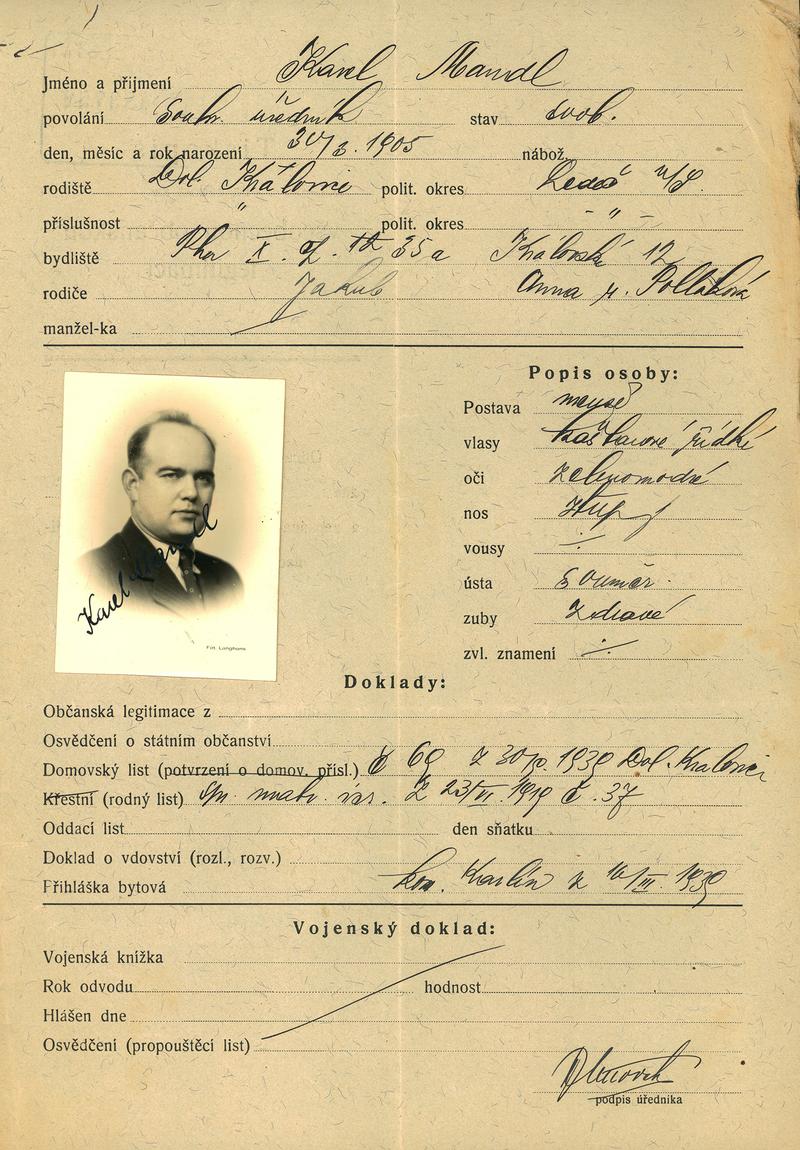 Jméno a přijmení Karel Mandl
povolání Soukr. úředník stav svob.
den, měsíc a rok narození 30/3. 1905 nábož.
rodiště Dol. Královice polit. okres Ledeč n/S.
příslušnost " polit. okres - " -
bydliště X. 35a Královská 12
rodiče Jakub Anna r. Polláková
manžel-ka
Popis osoby:
Postava menší
vlasy kaštanové řídké
oči zelenomodré
nos
vousy ÷
ústa souměr.
zuby zdravé
zvl. znamení ÷
Karel Mandl
Fot. Langhans
Doklady:
Občanská legitimace z
Osvědčení o státním občanství
Domovský list (potvrzení o domov. přísl.) č 69 z 1939 Dol. Kralovice
Křestní (rodný list) matr. izr. z 23/VI. 1919 č. 37
Oddací list den sňatku
Doklad o vdovství (rozl., rozv.)
Přihláška bytová kom. Karlín z 16/III. 1939
Vojenský doklad:
Vojenská knížka
Rok odvodu hodnost
Hlášen dne
Osvědčení (propouštěcí list)
podpis úředníka